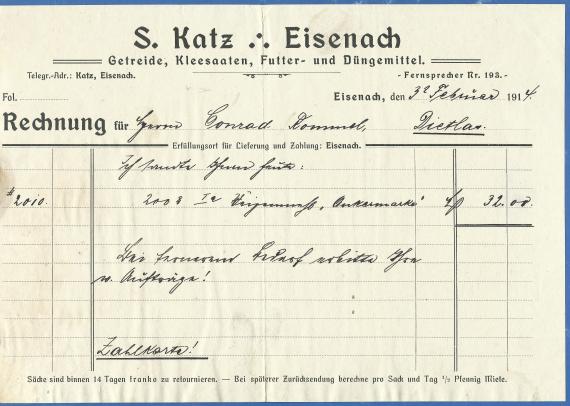 S. Katz ∴ Eisenach
Getreide, Kleesaaten, Futter- und Düngemittel.
Telegr.-Adr.: Katz, Eisenach.
- Fernsprecher Nr. 193. -
Fol.
Eisenach, den 3t Februar 1914.
Rechnung für Herrn Conrad Rommel, Dietlas.
Erfüllungsort für Lieferung und Zahlung: Eisenach.
Ich sandte Ihnen heute:
# 2010. 200 Ia „Ankermarke“ 32.00.
Bei fernerem Bedarf erbitte Ihre
w. Aufträge!
Zahlkarte!
Säcke sind binnen 14 Tagen franko zu retournieren. — Bei späterer Zurücksendung berechne pro Sack und Tag 1/2 Pfennig Miete.